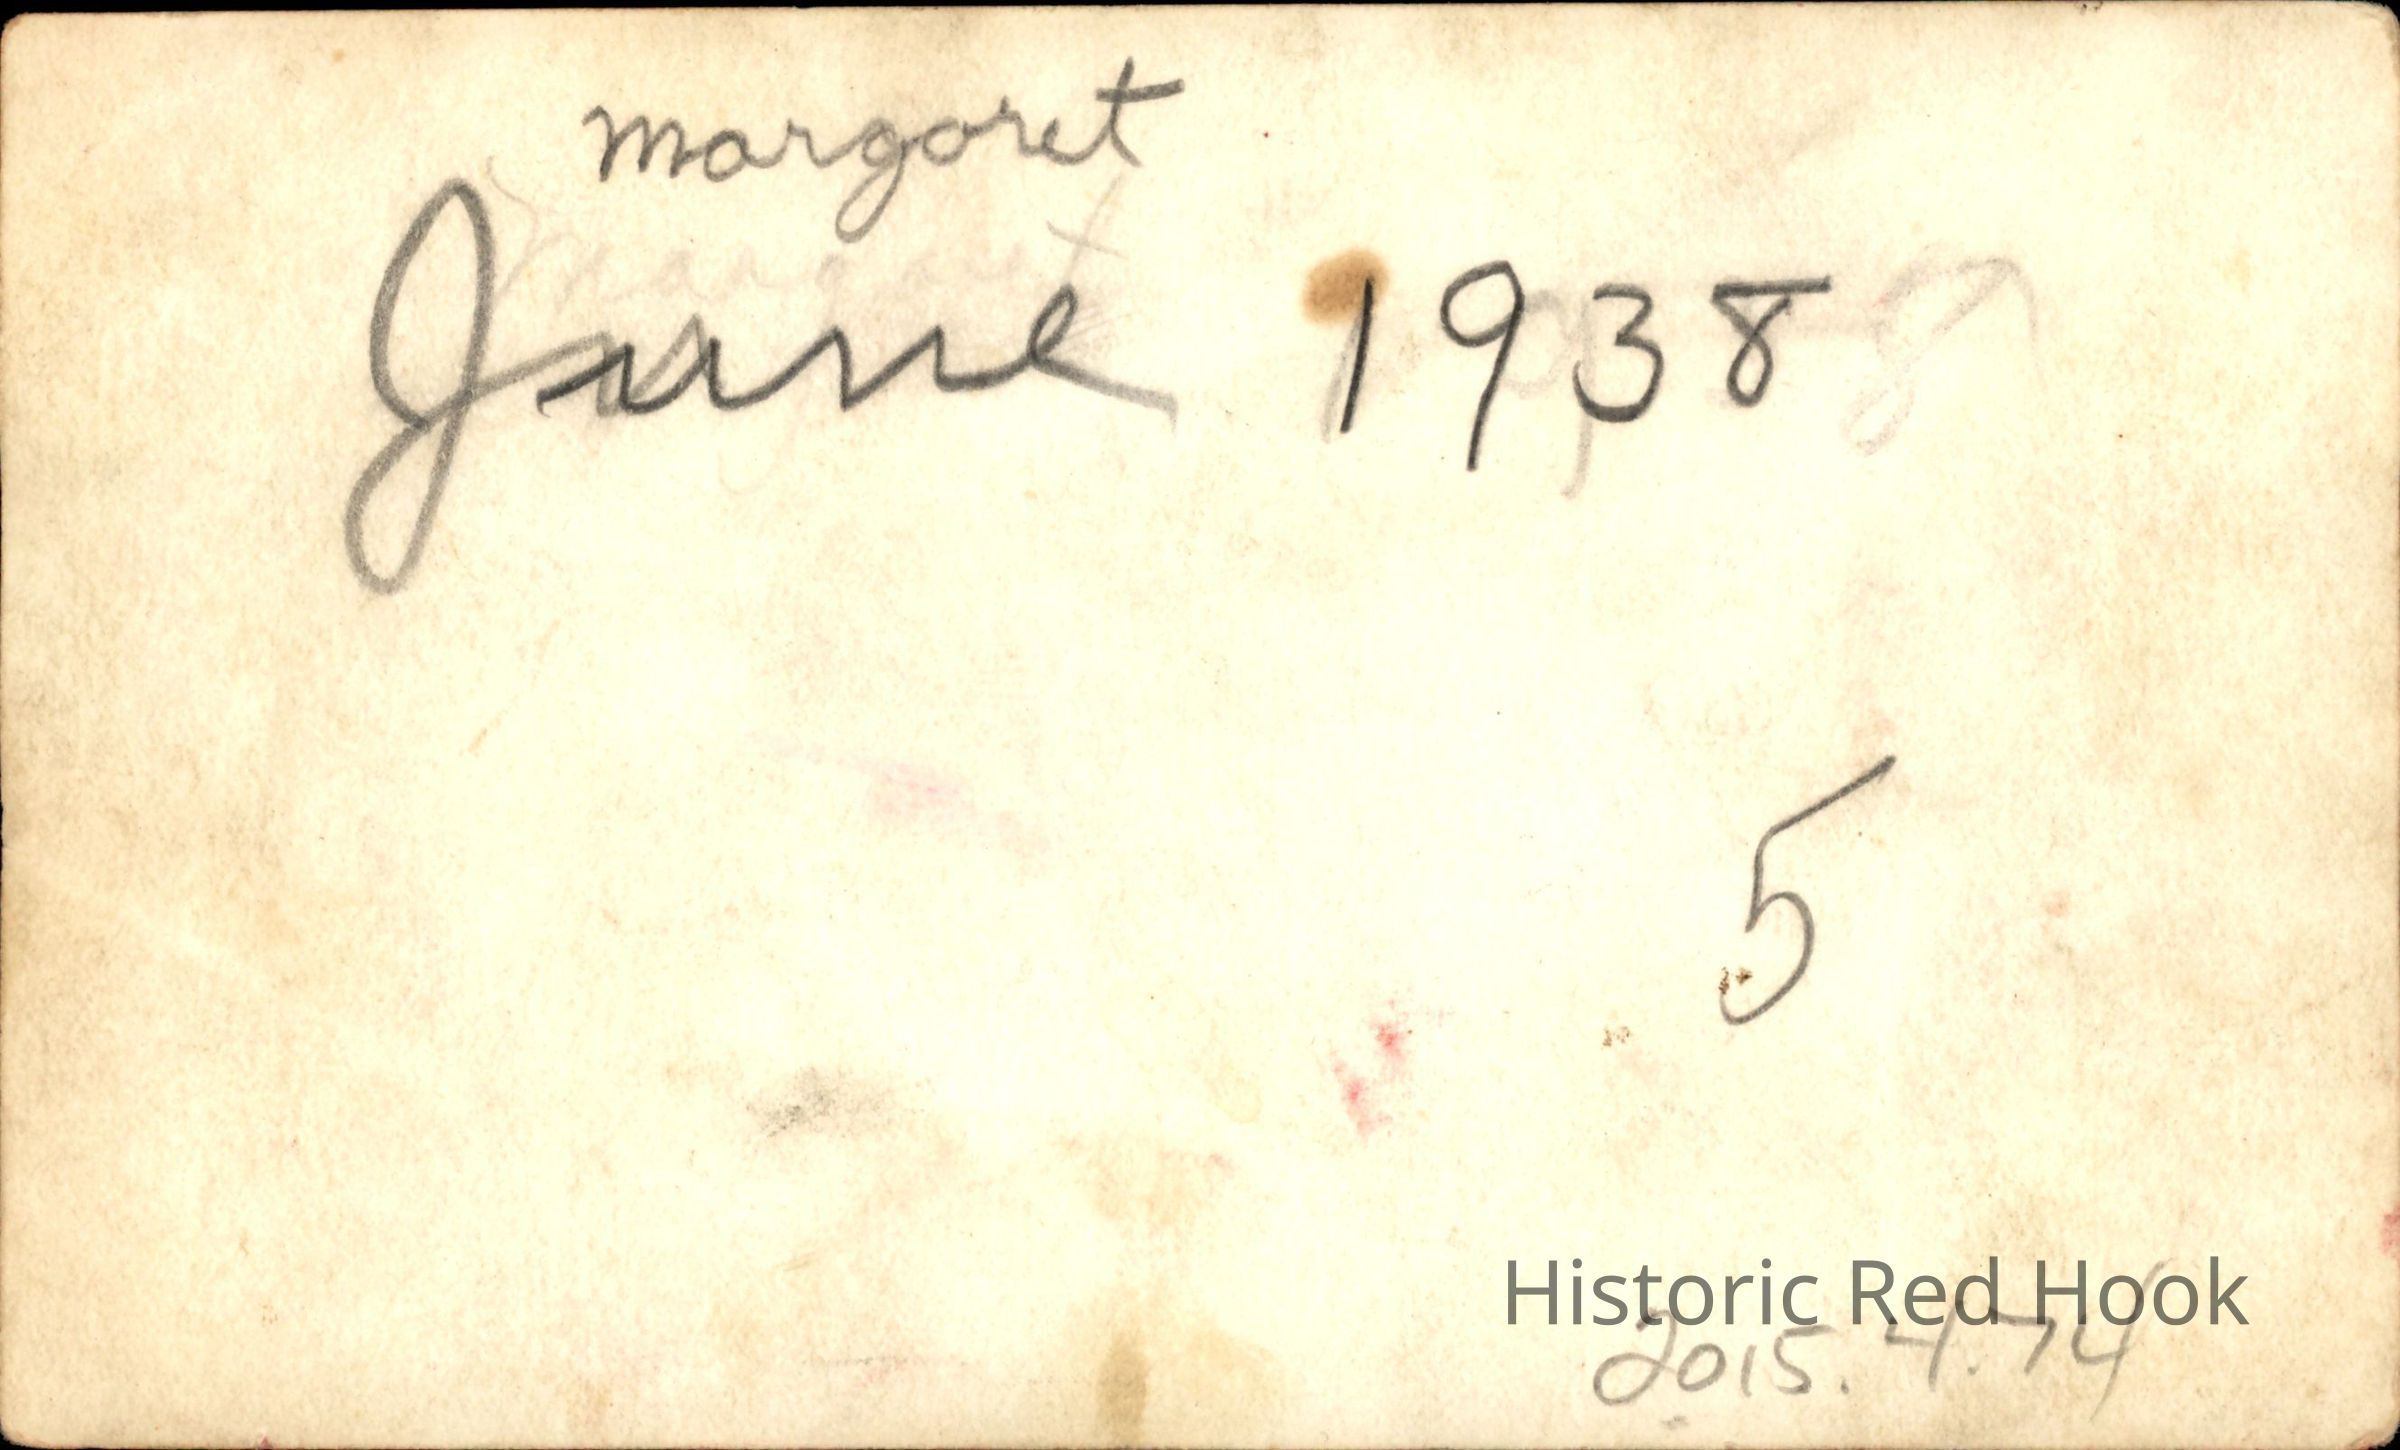 Margaret
June 1938
5
Historic Red Hook
2015.4.74